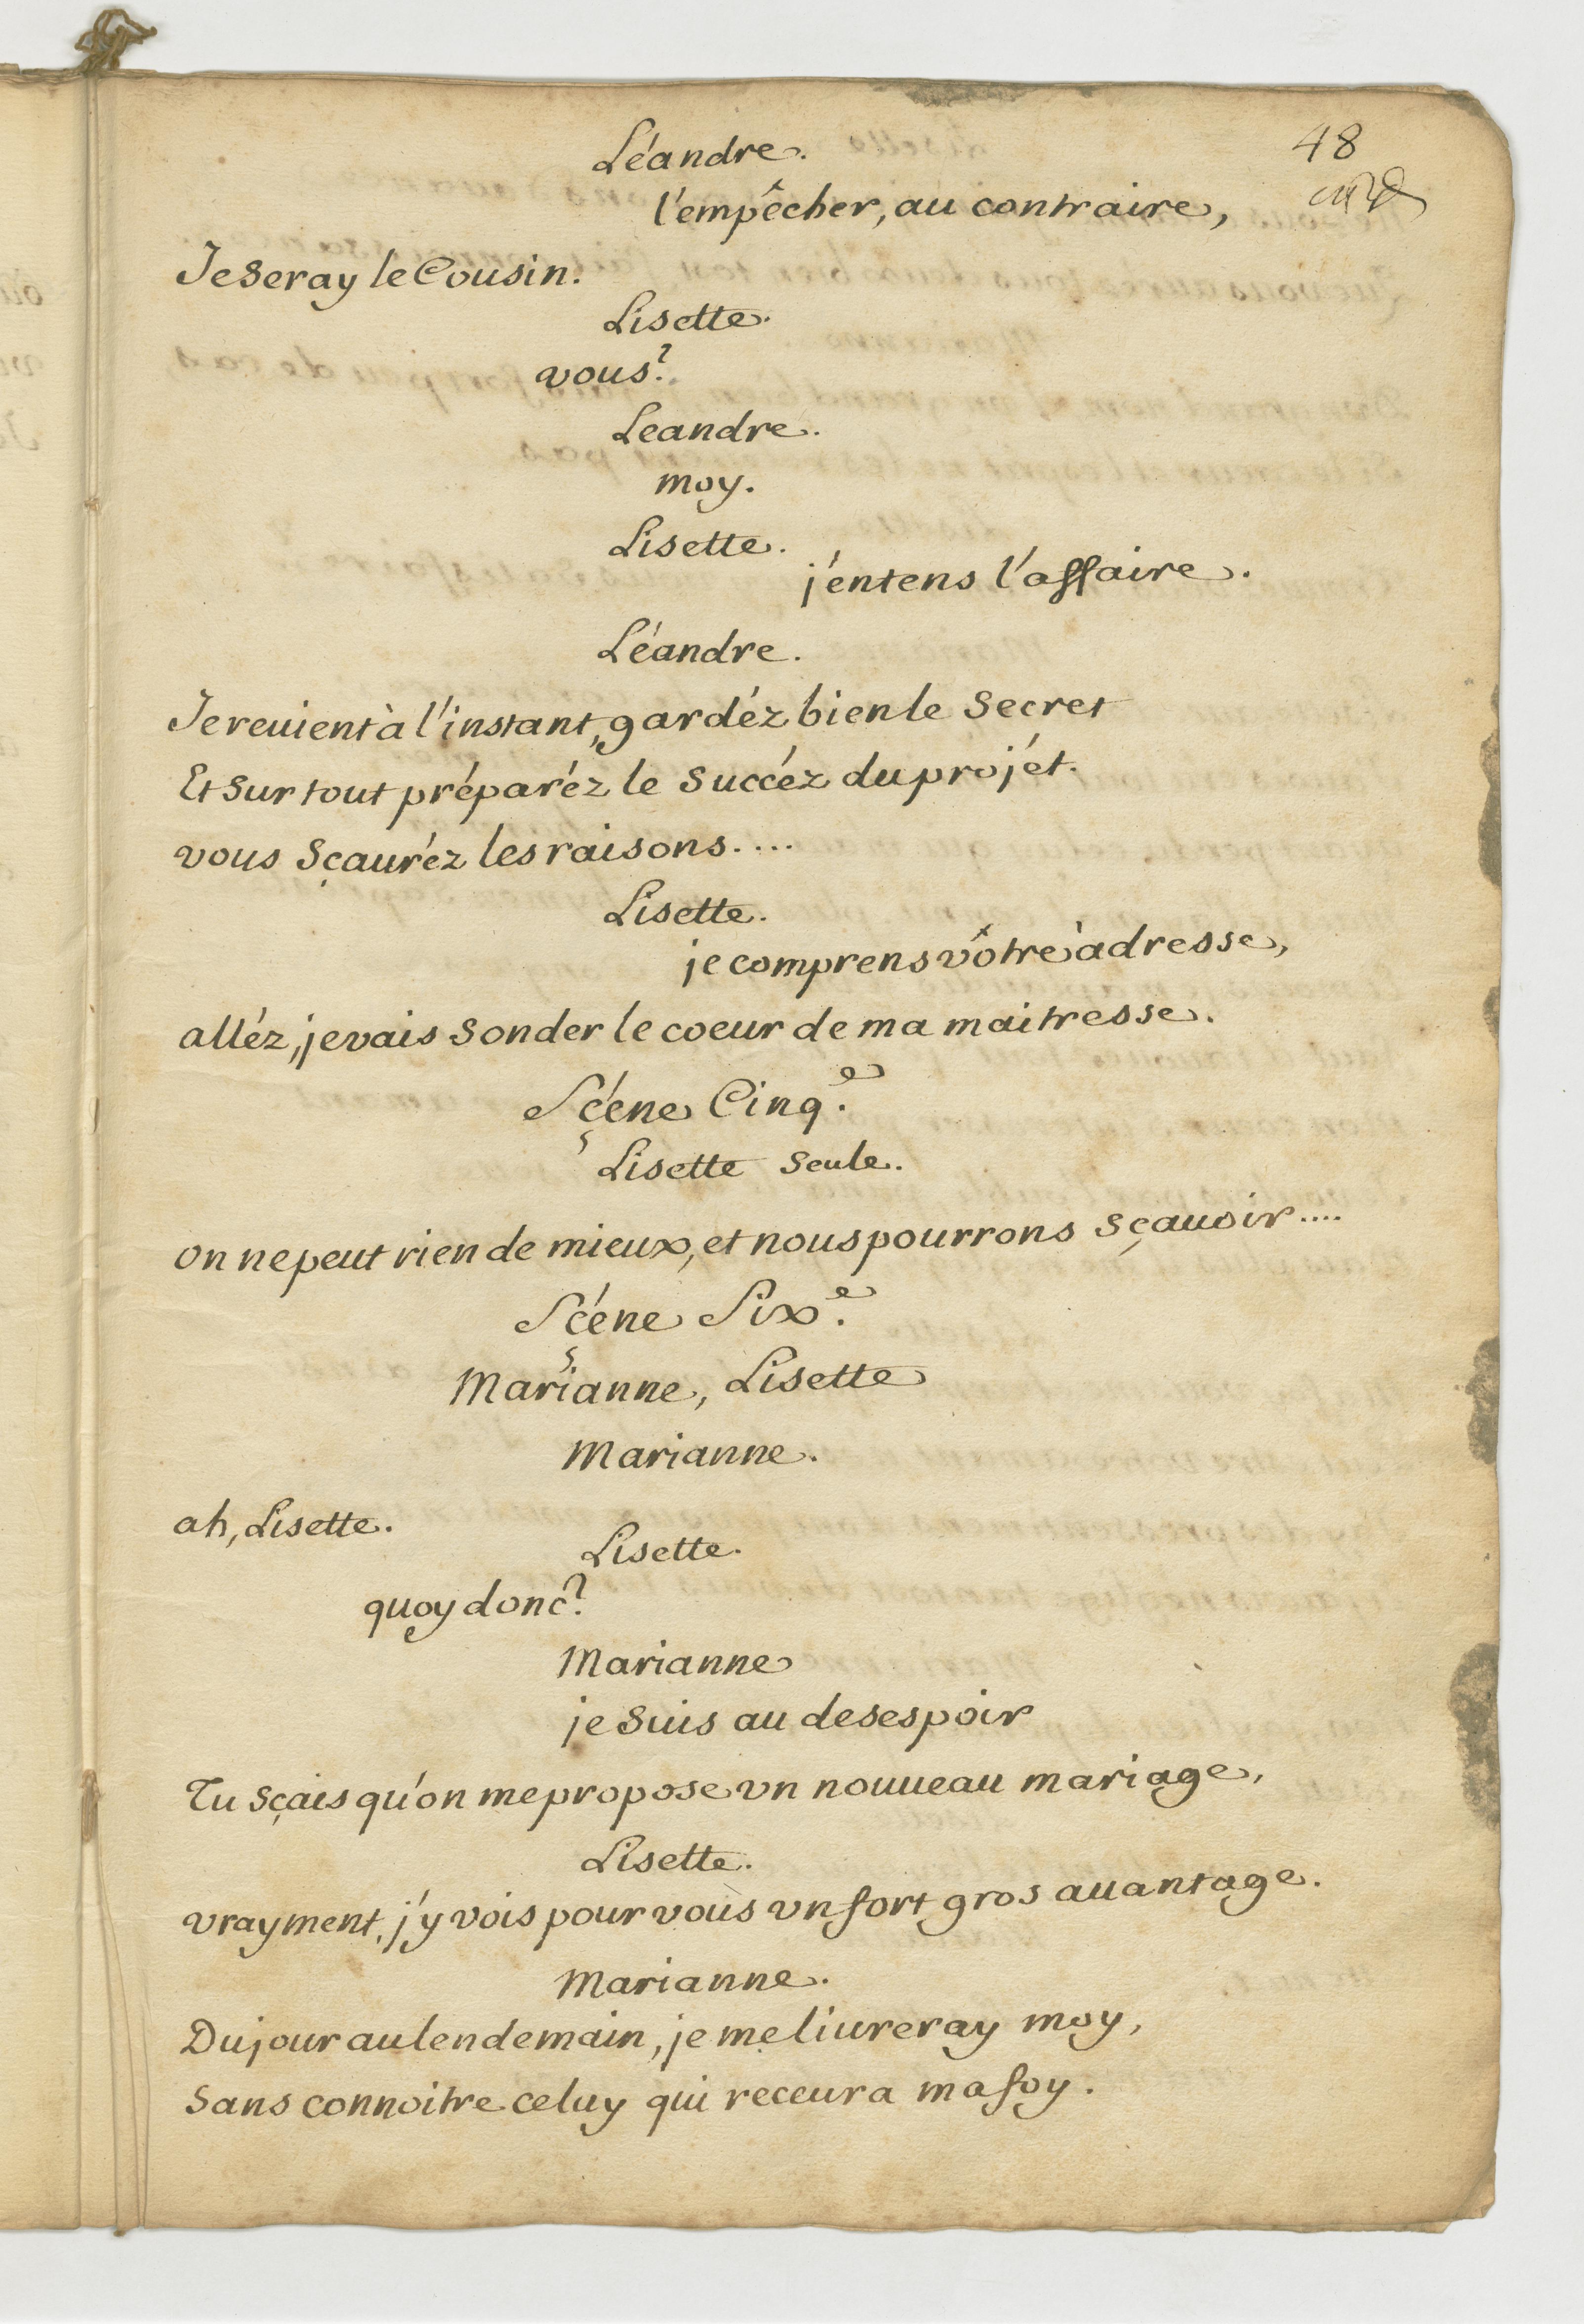 48
Léandre.
l'empêcher, au contraire,
Je Seray le Cousin.
Lisette.
vous?
Leandre.
moy.
Lisette.
j'entens l'affaire.
Léandre.
Je reuient à l'instant, gardéz bien le Secret
Et Sur tout préparéz le Succéz du projét.
vous Sçauréz les raisons....
Lisette.
je comprens vôtre adresse,
alléz, je vais Sonder le coeur de ma maitresse.
Sçéne Cinq.e
Lisette Seule.
on ne peut rien de mieux, et nous pourrons Sçauoir....
Sçéne Six.e
Marianne, Lisette
Marianne.
ah, Lisette.
Lisette.
quoy donc?
Marianne
je Suis au desespoir
Tu Sçais qu'on me propose vn nouueau mariage,
Lisette.
vrayment, j'y vois pour vous vn fort gros auantage.
Marianne.
Du jour au lendemain, je me liureray moy,
Sans connoitre celuy qui receura ma foy.